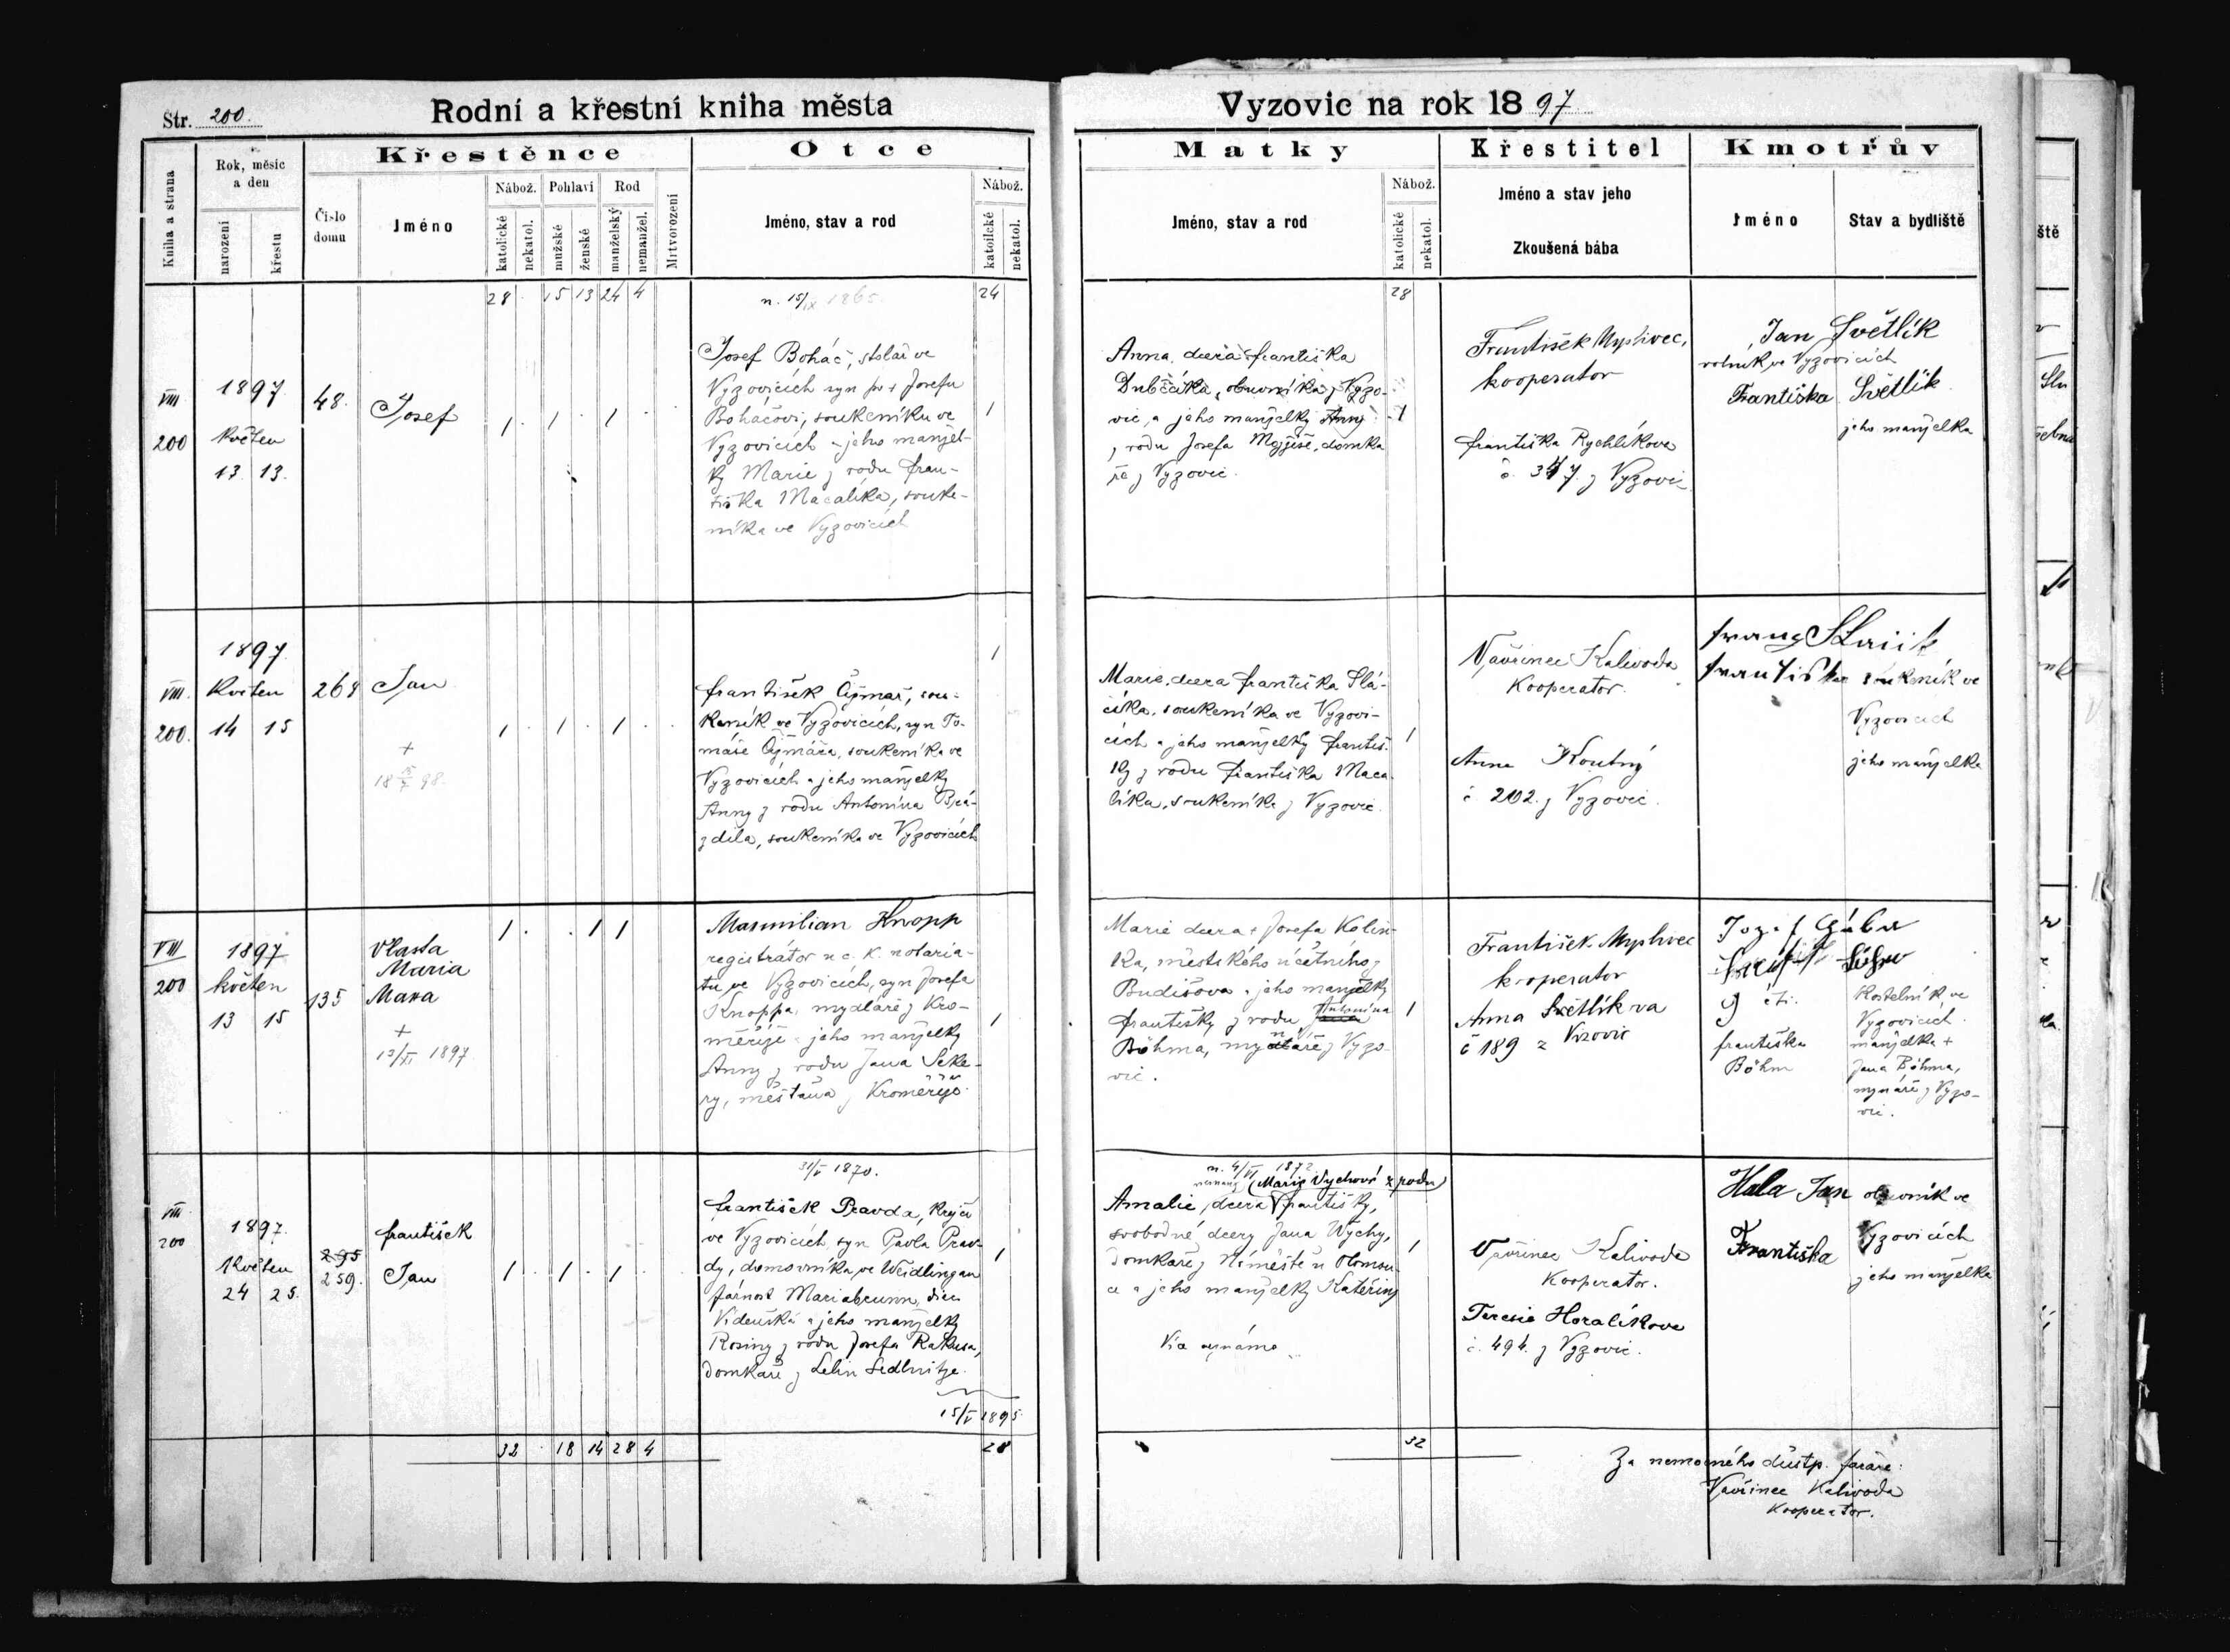 Str. 200.
Rodní a křestní kniha města
Vyzovic na rok 1897
Kniha a strana
Rok, měsíc
a den
narození
křestu
Křestěnce
Číslo
domu
Jméno
Nábož.
katolické
nekatol.
Pohlaví
mužské
ženské
Rod
manželský
nemanžel.
Mrtvorození
Otce
Jméno, stav a rod
Nábož.
katolické
nekatol.
Matky
Jméno, stav a rod
Nábož.
katolické
nekatol.
Křestitel
Jméno a stav jeho
Zkoušená bába
Kmotrův
Jméno
Stav a bydliště
28 · 15 13 24 4
n. 15/IX 1865
24
28
VIII
200
1897
květen
13. 13.
48.
Josef
1 · 1 · 1 ·
Josef Boháč, stolař ve
Vyzovicích syn po + Josefu
Boháčovi, soukeníku ve
Vyzovicích a jeho manžel-
ky Marie z rodu Fran-
tiška Macalíka, souke-
níka ve Vyzovicích
1
Anna, dcera Františka
Dubčáka, obuvníka z Vyzo-
vic, a jeho manželky Anny
z rodu Josefa Mojžíše, domka
ře z Vyzovic.
1
František Myslivec,
kooperator
Františka Rychlíkova
č. 347. z Vyzovic
Jan Světlík
rolník ve Vyzovicích
Františka Světlík
jeho manželka
VIII.
200.
1897.
Květen
14 15
268
Jan
+
1 · 1 · 1 ·
František Čižmař, sou-
keník ve Vyzovicích, syn To-
máše Čižmáře, soukeníka ve
Vyzovicích a jeho manželky
Anny z rodu Antonína Brá-
zdila, soukeníka ve Vyzovicích
1
Marie, dcera Františka Slá-
číka, soukeníka ve Vyzovi-
cích a jeho manželky Františ-
ky z rodu Františka Maca-
líka, soukeníka z Vyzovic.
1
Vavřinec Kalivoda
Kooperator.
Anna Koutný
č 202. z Vyzovic.
Františka soukeník ve
Vyzovicích
jeho manželka
VIII
200
1897
květen
13 15
135
Vlasta
Maria
+
13/XI 1897
1 · · 1 1
Maxmilian Knopp
registrátor u c. k. notariá-
tu ve Vyzovicích, syn Josefa
Knoppa, mydláře z Kro-
měříže a jeho manželky
Anny z rodu Jana Seke-
ry, měšťana z Kroměříže.
1
Marie dcera + Josefa Kalin-
ka, městského účetního z
Budišova a jeho manželky
Františky z rodu Antonína
Böhma, mynáře z Vyzo-
vic.
1
František Myslivec
kooperator
Anna Světlíkova
č 189 z Vizovic
Jozef Gába
Františka
Böhm
Kostelník ve
Vyzovicích.
manželka +
Jana Böhma,
mynáře z Vyzo-
vic.
VIII
200
1897.
Květen
24 25.
295
259.
František
Jan
1 · 1 · 1 ·
31/V 1870.
František Pravda, krejčí
ve Vyzovicích syn Pavla Prav-
dy, domovníka ve Weidlingau
farnost Mariabrunn, diec.
Vídeňská a jeho manželky
Rosiny z rodu Josefa
domkaře z
15/V 1895.
1
n. 4/VI 1872
(Marie Vychové z rodu)
Amalie, dcera Františky,
svobodné dcery Jana Vychy,
domkaře z Náměště u Olomou-
ce a jeho manželky Kateřiny
1
Vavřinec Kalivoda
Kooperator.
Teresie Horalíkova
č. 494. z Vyzovic.
Hala Jan obuvník ve
Vyzovicích
Františka
jeho manželka
32 · 18 14 28 4
28
32
Za nemocného důstp. faráře:
Vavřinec Kalivoda
Kooperator.